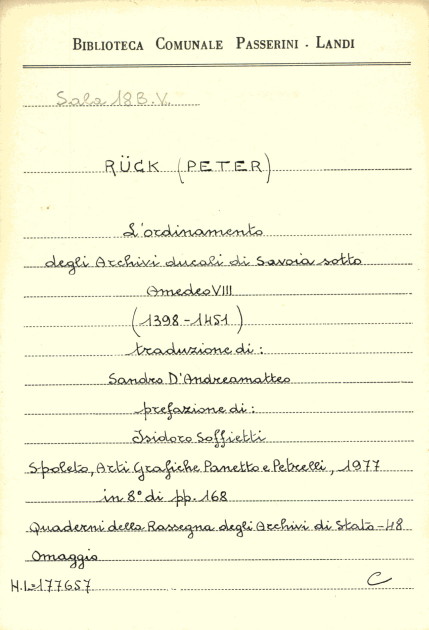 BIBLIOTECA COMUNALE PASSERINI - LANDI
Sala 18 B. V.
RÜCK (PETER)
L'ordinamento
degli Archivi ducali di Savoia sotto
Amedeo VIII
(1398-1451)
traduzione di:
Sandro D'Andreamatteo
prefazione di:
Isidoro Soffietti
Spoleto, Arti Grafiche Panetto e Petrelli, 1977
in 8° di pp. 168
Quaderni della Rassegna degli Archivi di Stato - 48
Omaggio
H.L=177657 C